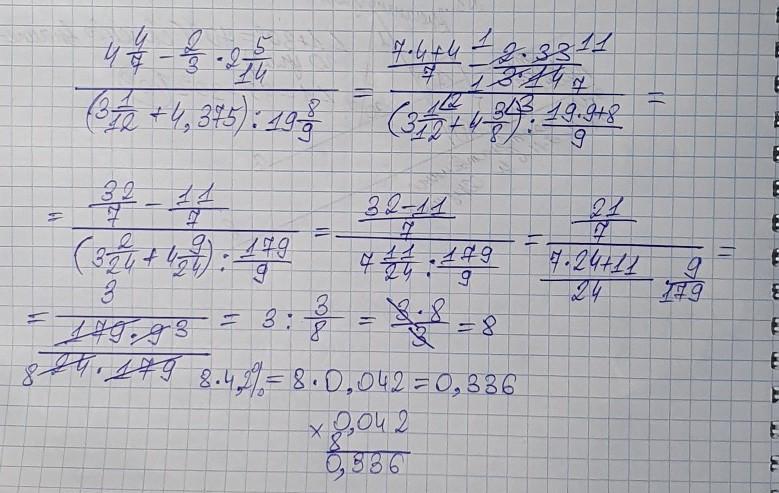 (4 4/7 − 2/3 · 2 5/14) / ((3 1/12 + 4,375) : 19 8/9) = ((7·4+4)/7 − (2·33)/(3·14) 1 11 1 7) / ((3 1/12 /2 + 4 3/8 /3) : (19·9+8)/9) =
= (32/7 − 11/7) / ((3 2/24 + 4 9/24) : 179/9) = ((32−11)/7) / (7 11/24 : 179/9) = (21/7) / ((7·24+11)/24 9/179) =
= 3 / ((179·9 3)/(8 24·179)) = 3 : 3/8 = (3·8)/3 = 8
8·4,2% = 8·0,042 = 0,336
× 0,042
8
0,336